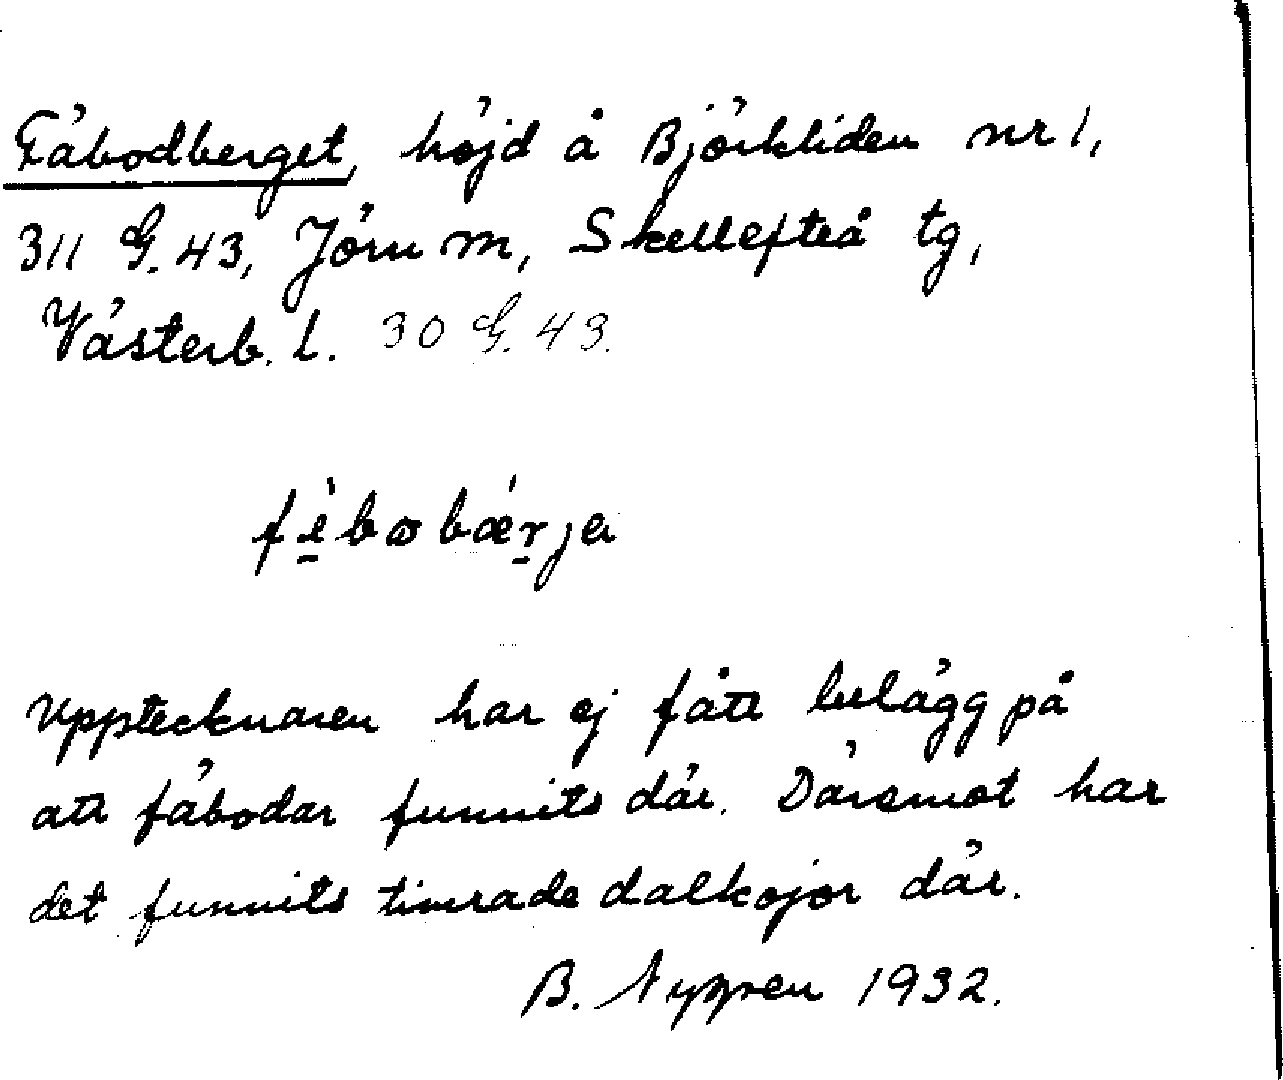 Fäbodberget, höjd å Björkliden nr 1,
311 G. 43, Jörn m, Skellefteå tg,
Västerb. l. 30 G. 43.
fè̱bωbǽṟja
Upptecknaren har ej fått belägg på
att fäbodar funnits där. Däremot har
det funnits timrade dalkojor där.
B. Nygren 1932.